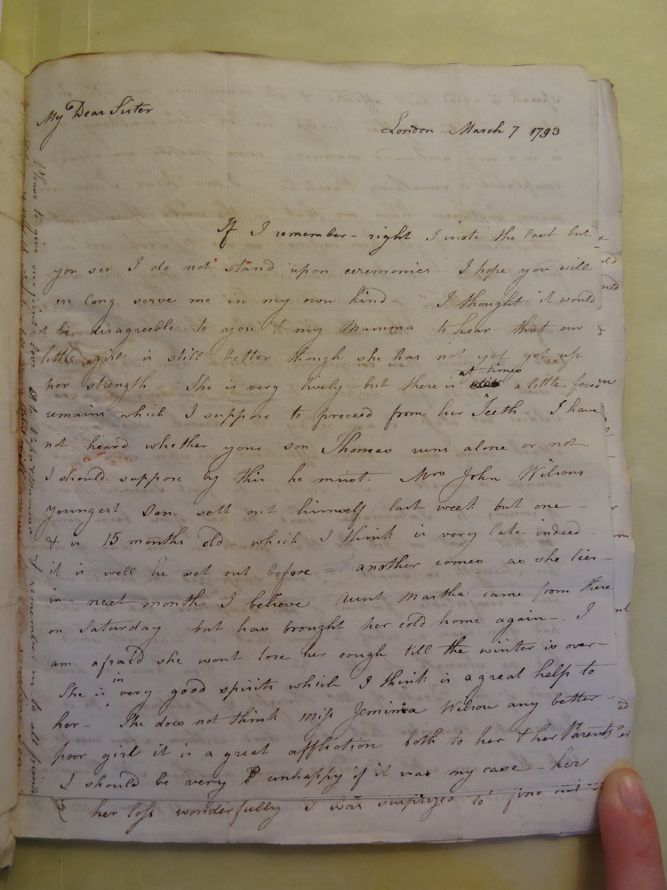 My Dear Sister
London March 7 1793
If I remember - right I wrote the last but
you see I do not stand upon ceremonies I hope you will
ere long serve me in my own kind - I thought it would
not be disagreeble to you & my Mamma to hear that our
little girl is still better though she has not yet got up
her strength She is very lively but there is at times a little fever
remains which I suppose to proceed from her Teeth I have
not heard whether your son Thomas runs alone or not
I should suppose by this he must. Mrs John Wilsons
youngest Son sett out himself last week but one -
& is 15 months old - which I think is very late indeed -
it is well he set out before = another comes as she lies
in next month I believe Aunt Martha came from there
on Saturday but has brought her cold home again - I
am afraid she wont lose her cough till the winter is over -
She is in very good spirits which I think is a great help to
her - She does not think Miss Jemima Wilson any better -
poor girl it is a great affliction both to her & her Parents
I should be very unhappy if it was my case - her
her loss wonderfully I was surprized to find